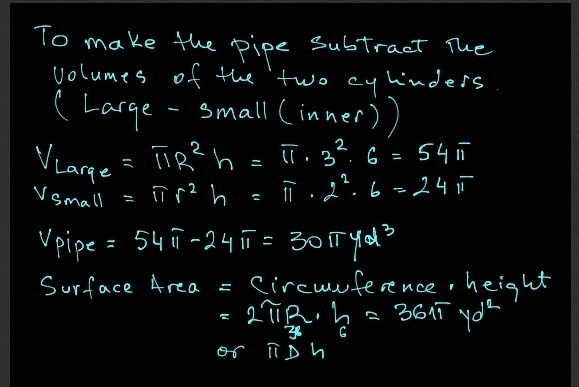 To make the pipe subtract the
volumes of the two cylinders.
(Large - small (inner))
V Large = πR² h = π · 3² · 6 = 54π
V small = πr² h = π · 2² · 6 = 24π
Vpipe = 54π - 24π = 30π yd³
Surface Area = Circumference · height
= 2πR · h = 36π yd²
3 6
or πDh